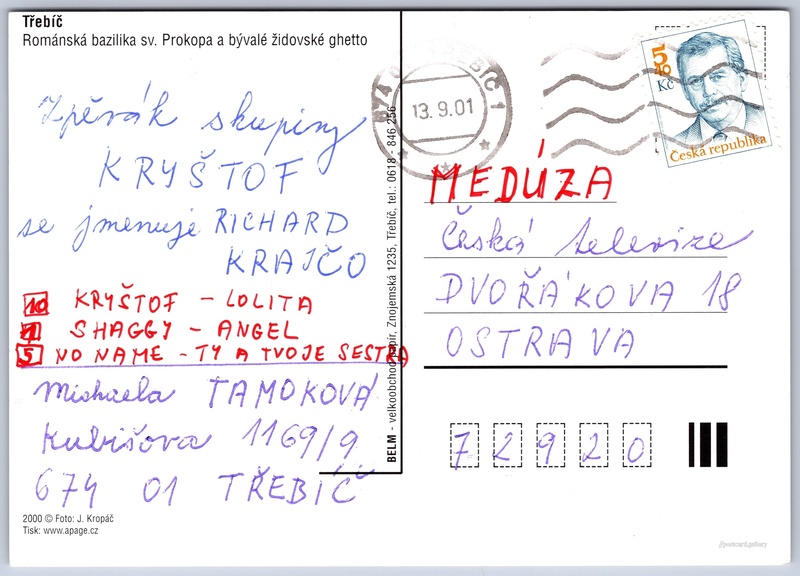 Třebíč
Románská bazilika sv. Prokopa a bývalé židovské ghetto
Zpěvák skupiny
KRYŠTOF
se jmenuje RICHARD
KRAJČO
10 KRYŠTOF - LOLITA
1 SHAGGY - ANGEL
5 NO NAME - TY A TVOJE SESTRA
Michaela TAMOKOVÁ
Kubišova 1169/9
674 01 TŘEBÍČ
2000 © Foto: J. Kropáč
Tisk: www.apage.cz
BELM - velkoobchod papír, Znojemská 1235, Třebíč, tel.: 0618 - 846 256
674 01 TŘEBÍČ 1
13.9.01
5 40
Kč
Česká republika
MEDÚZA
Česká televize
DVOŘÁKOVA 18
OSTRAVA
72920
postcard.gallery